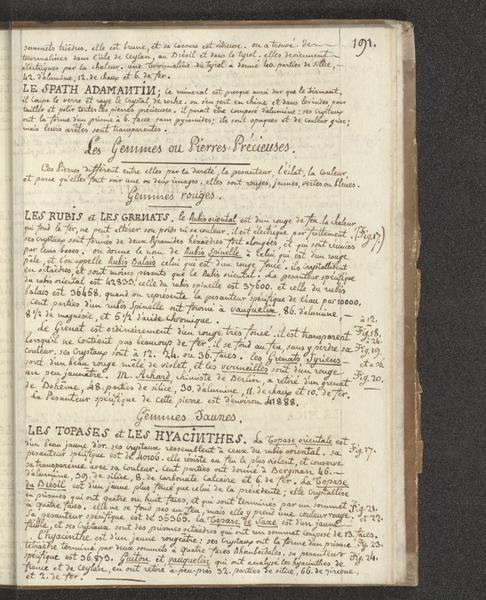 191.
sommets trièdres. elle est brune, et sa cassure est vitreuse. on a trouvé des
tourmalines dans l'isle de Ceylan, au Brésil et dans le tyrol. elles deviennent
électriques par la chaleur. une Tourmaline du tyrol a donné 40. parties de silice,
42. d'alumine, 12. de chaux et 6. de fer.
LE SPATH ADAMANTIN; ce minéral est presque aussi dur que le diamant,
il coupe le verre et raye le crystal de roche. on s'en sert en chine et dans les indes pour
tailler et polir toutes les pierres précieuses. il paroît être composé d'alumine: ses crystaux
ont la forme d'un prisme à 6. faces sans pyramides; ils sont opaques et de couleur grise;
mais leurs arêtes sont transparentes.
Les Gemmes ou Pierres Précieuses.
Ces Pierres diffèrent entre elles par la dureté, la pesanteur, l'éclat, la couleur,
et parce qu'elles font voir une ou deux images. elles sont rouges, jaunes, vertes ou bleues.
Gemmes rouges.
LES RUBIS et LES GRENATS. le Rubis oriental est d'un rouge de feu. la chaleur
qui fond le fer, ne peut altérer son poids ni sa couleur. il est électrique par frottement. (Fig. 17.)
ses crystaux sont formés de deux pyramides hexaèdres fort alongées, et qui sont réunies
par leurs bases. on donne le nom de Rubis Spinelle à celui qui est d'un rouge
pâle, et l'on appelle Rubis Balais celui qui est d'un rouge foncé. ils crystallisent
en octaèdres, et sont moins pesants que le Rubis oriental. La pesanteur spécifique
du rubis oriental est 42833. celle du rubis spinelle est 37600. et celle du rubis
balais est 36458. quand on représente la pesanteur spécifique de l'eau par 10000.
Cent parties d'un rubis Spinelle ont fourni à vauquelin 86. d'alumine,
8 1/2 de magnésie, et 5 1/2 d'acide chromique.
Le Grenat est ordinairement d'un rouge très foncé. il est transparent
lorsqu'il ne contient pas beaucoup de fer. il se fond au feu, sans y perdre sa
couleur. ses crystaux sont à 12. 24. ou 36. faces. les Grenats Syriens
sont d'un beau rouge mêlé de violet, et les vermeilles sont d'un rouge
un peu jaunâtre. M. Achard chimiste de Berlin, a retiré d'un grenat
de Bohème, 48. parties de silice, 30. d'alumine, 11. de chaux et 10. de fer.
La Pesanteur spécifique de cette pierre est d'environ 41888.
à 12.
Fig. 18.
à 24.
Fig. 19.
et à 36.
Fig. 20.
Gemmes Jaunes.
LES TOPASES et LES HYACINTHES. La Topase orientale est
d'un beau jaune d'or. ses crystaux ressemblent à ceux du rubis oriental. sa Fig. 17.
pesanteur spécifique est de 40106. elle résiste au feu le plus violent, et conserve
sa transparence avec sa couleur. Cent parties ont donné à Bergman, 46.
d'alumine, 39. de silice, 8. de carbonate calcaire et 6. de fer. La Topase
du Brésil est d'un jaune plus foncé que celui de la précédente; elle crystallise
en prismes qui ont quatre ou huit faces, et qui sont terminés par un sommet Fig. 21.
à quatre faces. elle ne se fond pas au feu, mais elle y prend une couleur rouge. et 22.
sa pesanteur spécifique est de 35365. la Topase de Saxe est d'un jaune
foible, et ses crystaux sont des prismes octaèdres qui ont un sommet composé de 13. faces.
l'hyacinthe est d'un jaune rougeâtre; ses crystaux ont la forme d'un prisme Fig. 23.
tétraèdre terminé par deux sommets à quatre faces rhomboïdales. sa pesanteur
spécifique est 36.873. Guiton et vauquelin qui ont analysé les hyacinthes de Fig. 24.
france et de Ceylan, en ont retiré à peu près 32. parties de silice, 66. de zircone,
et 2. de fer.